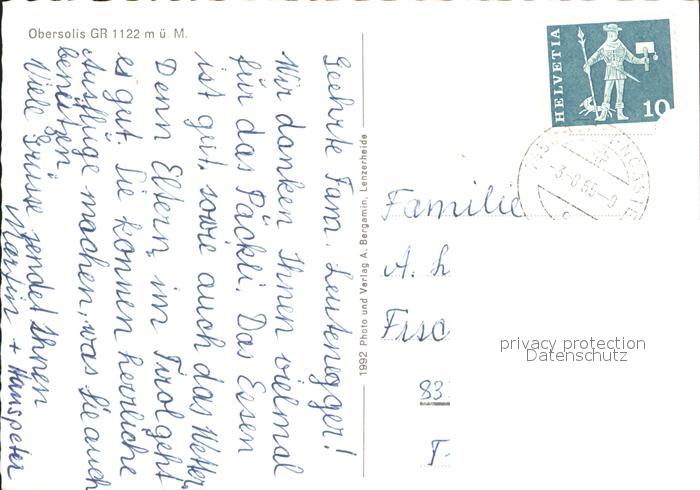 Obersolis GR 1122 m ü. M.
Geehrte Fam. Leutenegger!
Wir danken Ihnen vielmal
für das Päckli. Das Essen
ist gut, sowie auch das Wetter.
Denn Eltern im Tirol geht
es gut. Sie können herrliche
Ausflüge machen, was Sie auch
benützen.
Viele Grüsse sendet Ihnen
Martin + Hanspeter
1992 Photo und Verlag A. Bergamin, Lenzerheide
HELVETIA
10
Familie
A. L
Fisc
83
T-
privacy protection
Datenschutz